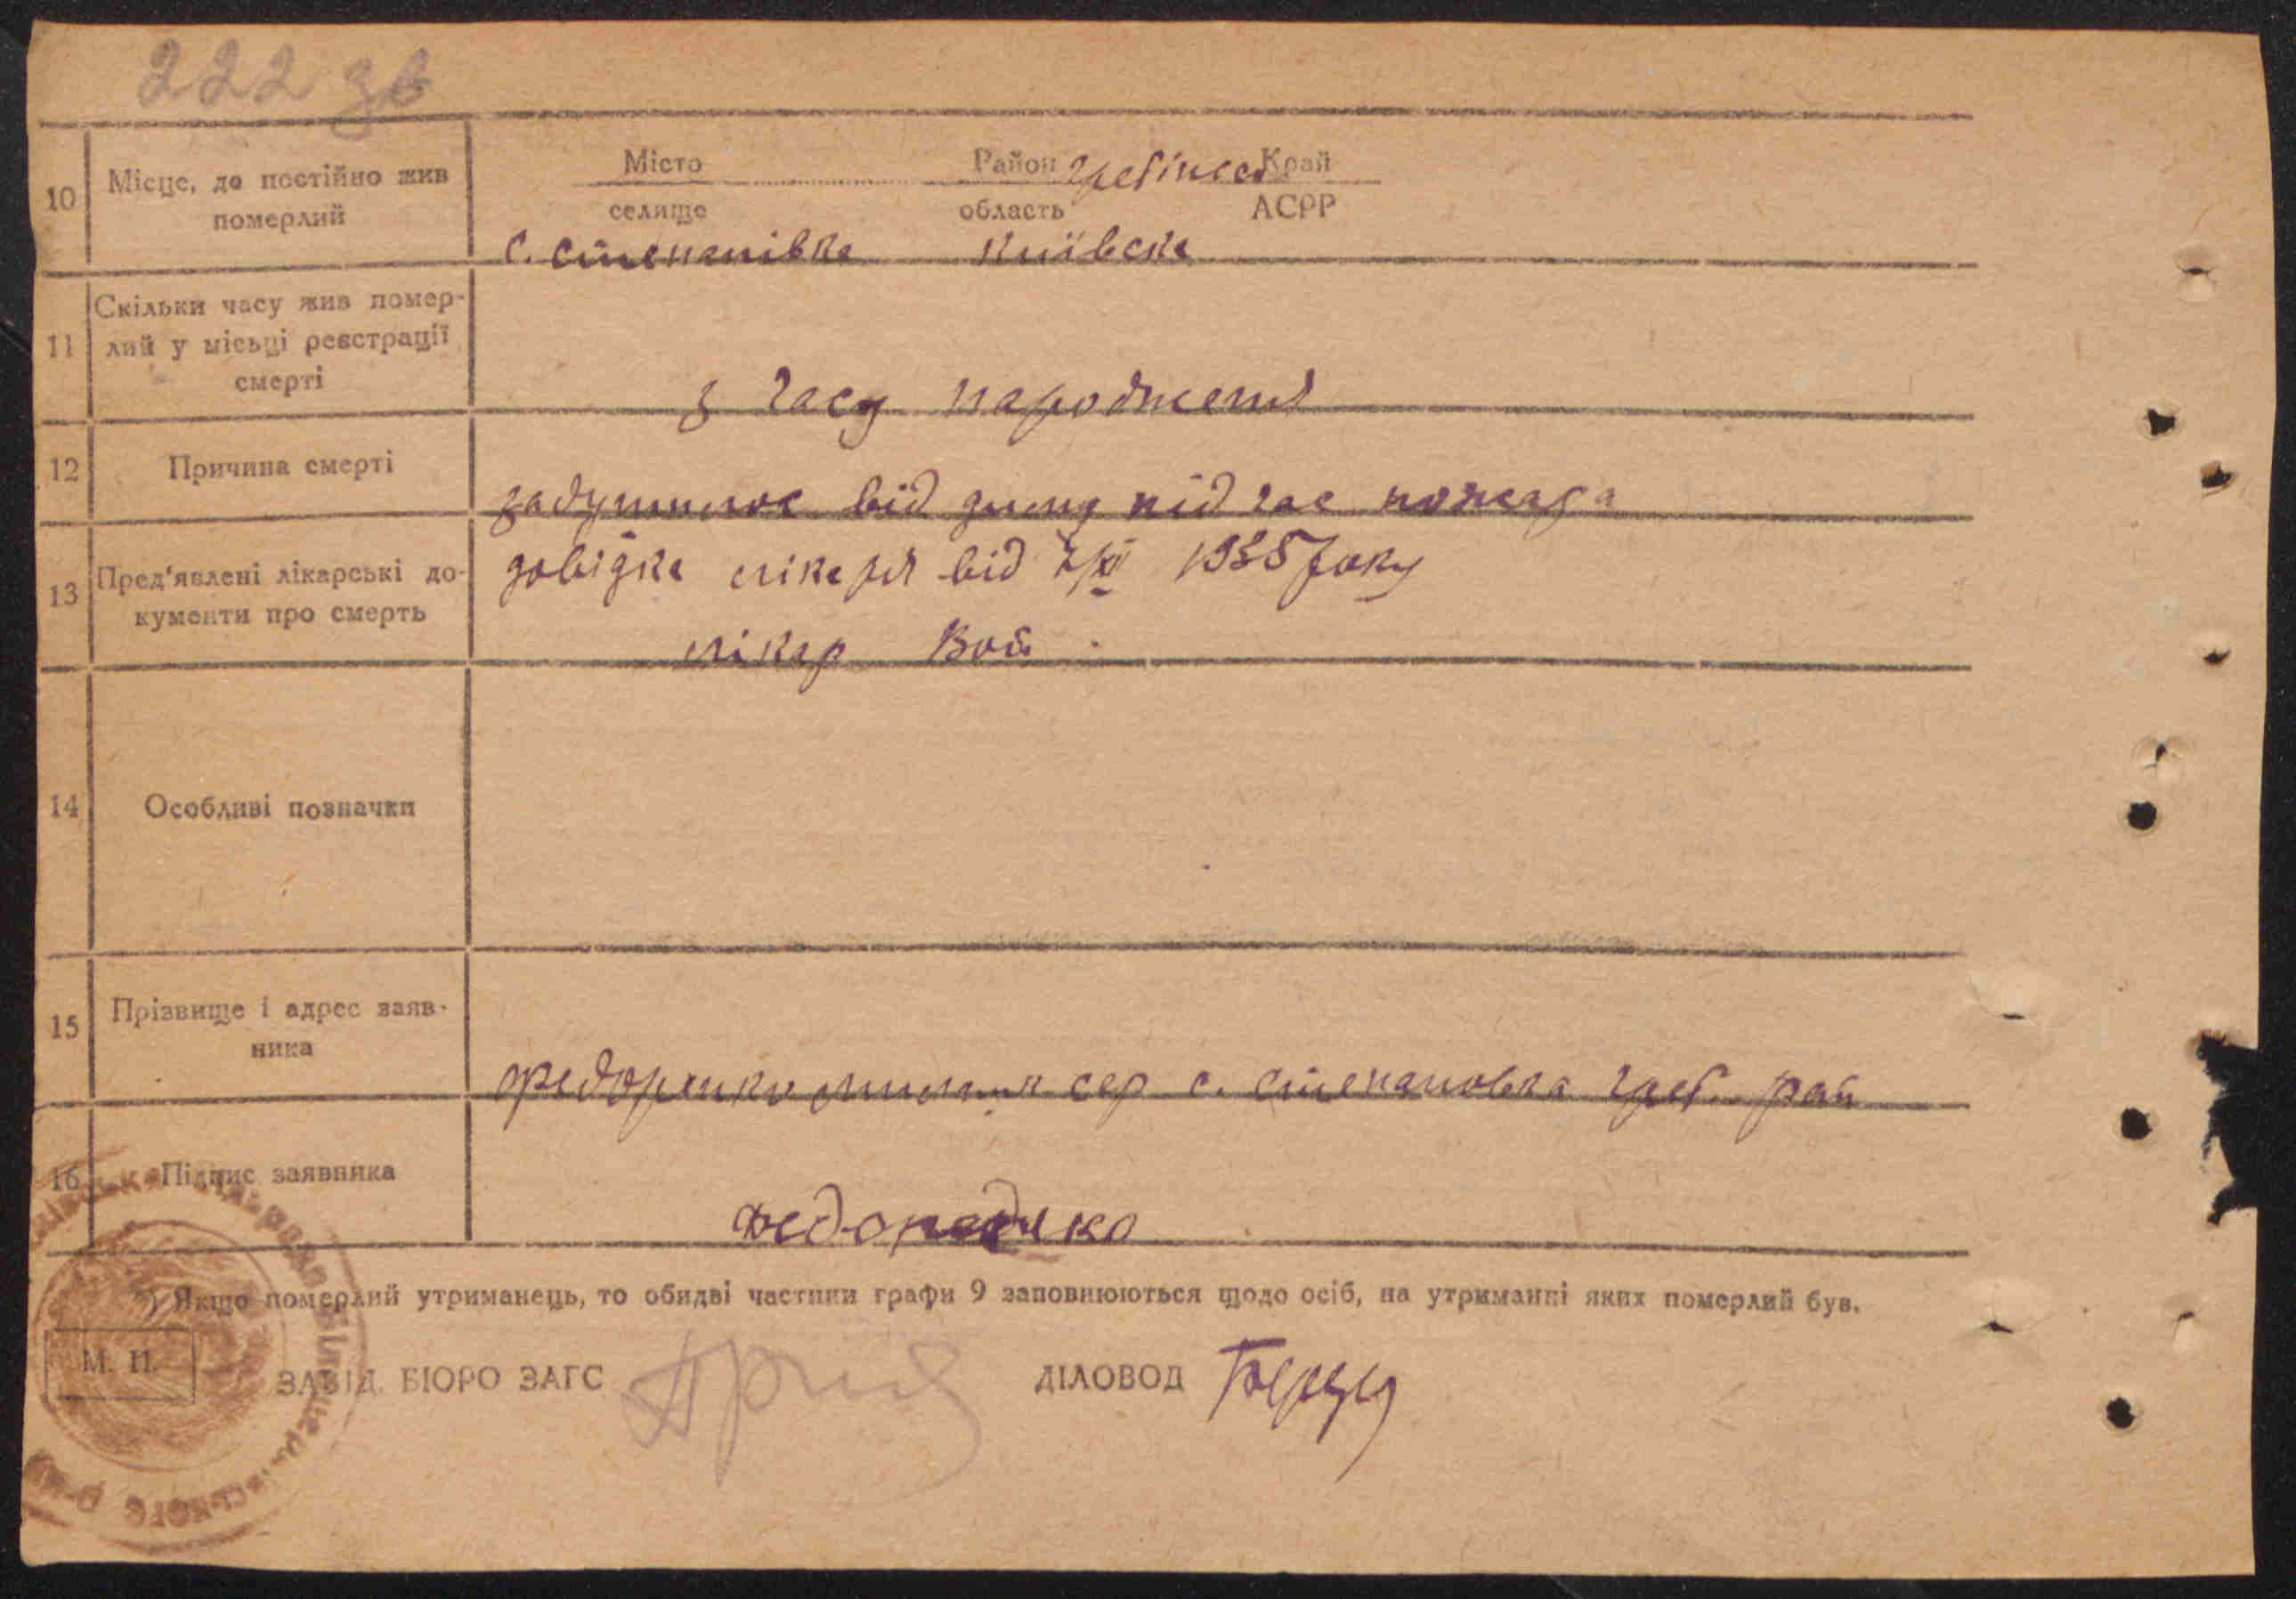 222 зв
10 Місце, де постійно жив померлий
Місто Район Гребінсь Край
селище область АСРР
с. степанівка київска
11 Скільки часу жив помер-
лий у місьці реєстрації
смерті
з часу народження
12 Причина смерті
задушилос від диму під час пожара
13 Пред'явлені лікарські до-
кументи про смерть
довідка лікаря від 1935 року
лікар
14 Особливі позначки
15 Прізвище і адрес заяв-
ника
федоренко с. степановка греб. рай
16 Підпис заявника
*) Якщо померлий утриманець, то обидві частини графи 9 заповнюються щодо осіб, на утриманні яких померлий був.
М. П.
ЗАВІД. БЮРО ЗАГС ДІЛОВОД